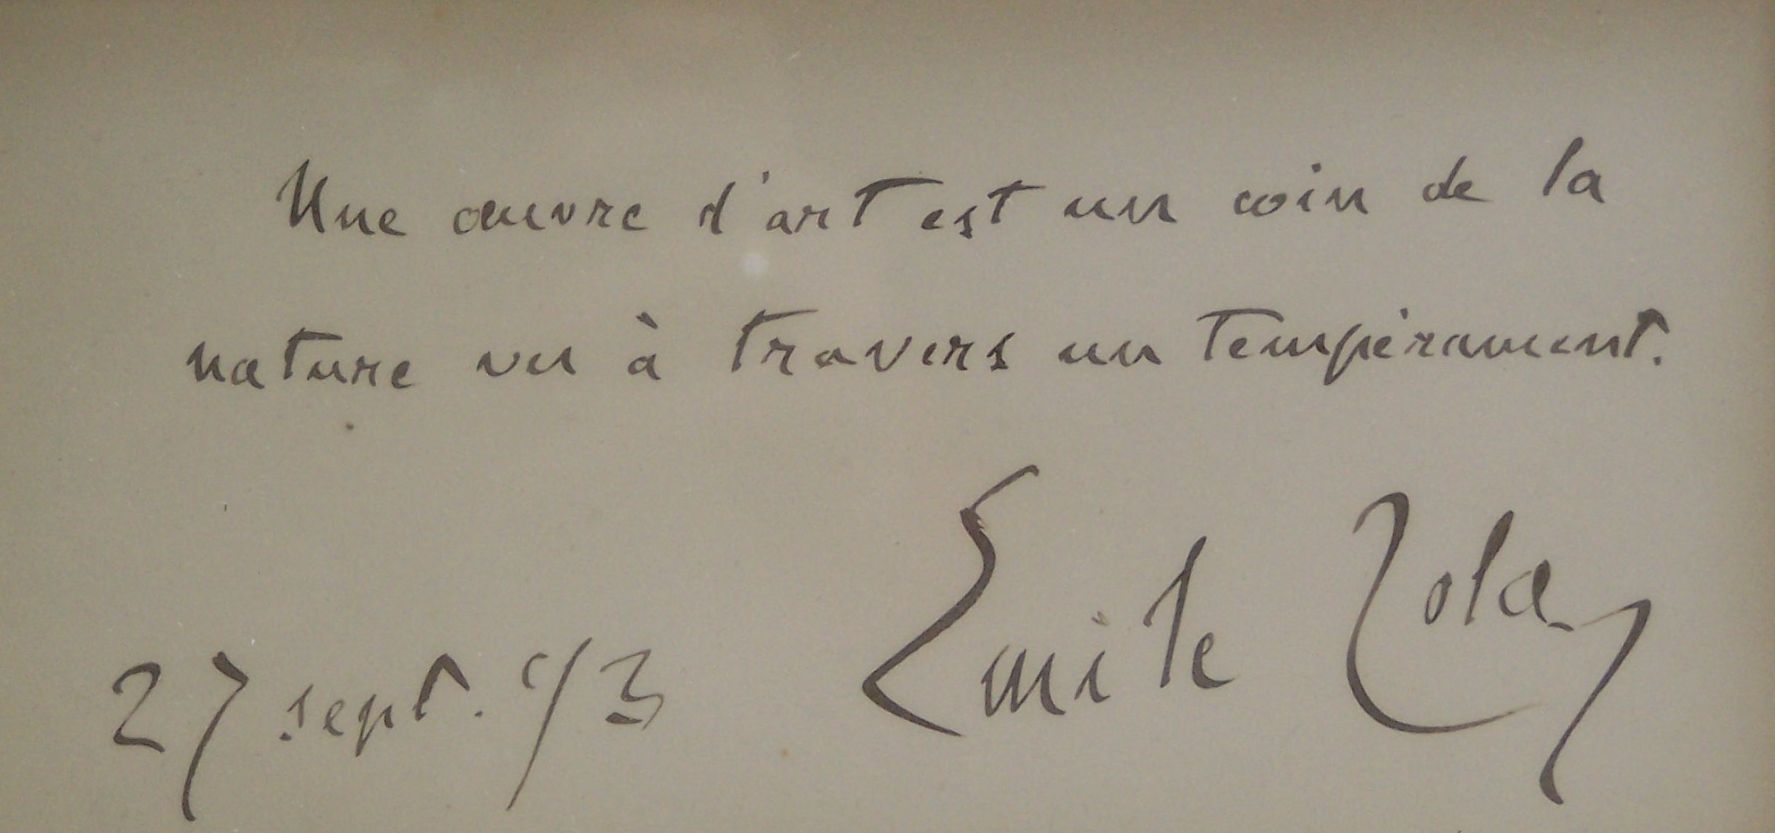 Une œuvre d'art est un coin de la
nature vu à travers un tempérament.
Emile Zola
27 sept. 93